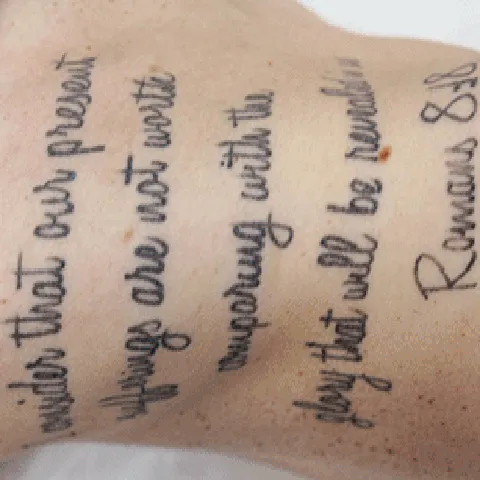 onsider that our present
ufferings are not worth
omparing with the
glory that will be
Romans 8:18